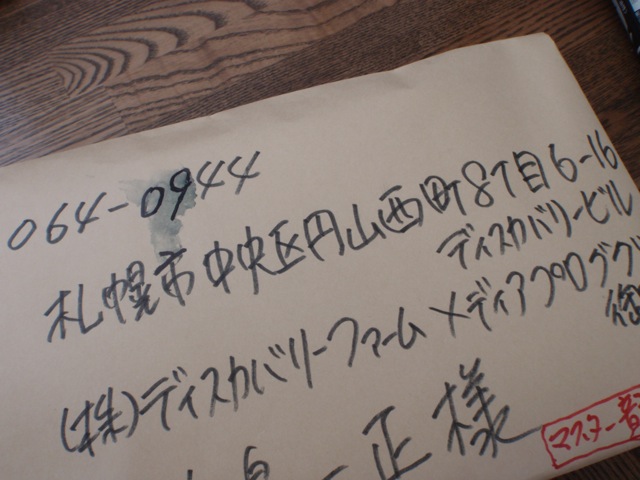 064-0944
札幌市中央区円山西町8丁目6-16
ディスカバリービル
(株)ディスカバリーファーム メディアプログラ
一正様
マスター音